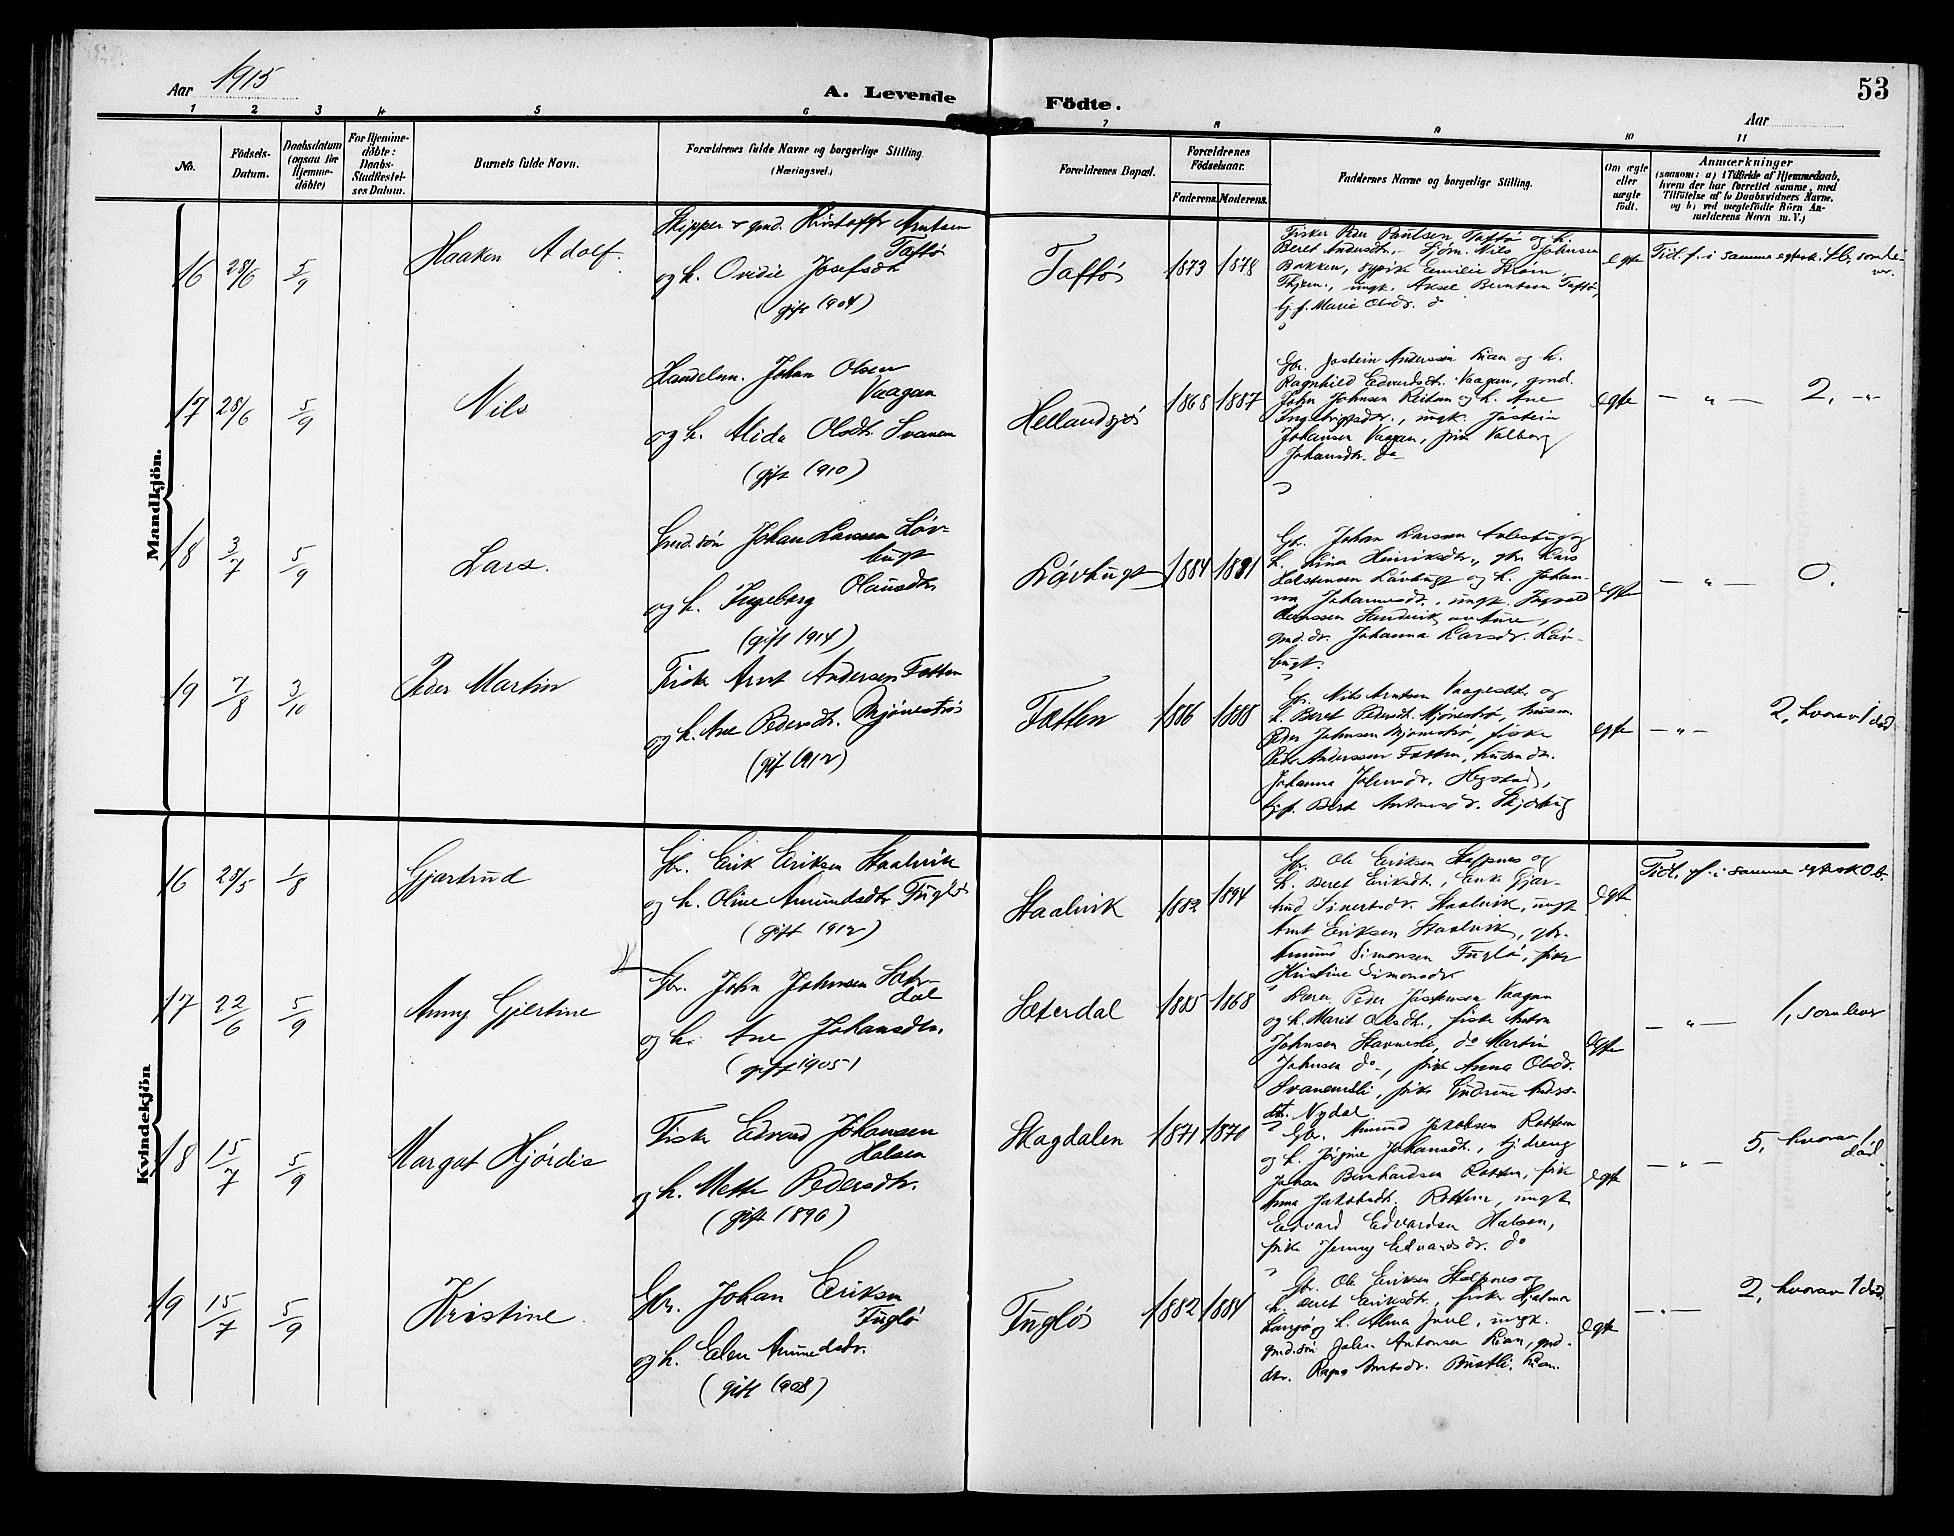 Aar 1915
A. Levende Födte.
53
Aar
1 2 3 4 5 6 7 8 9 10 11
No.
Födsels-Datum.
Daabsdatum (ogsaa for Hjemme-döbte)
For Hjemme-döbte: Daabs-Stadfæstel-ses Datum.
Barnets fulde Navn.
Forældrenes fulde Navne og borgerlige Stilling.
(Næringsvei.)
Forældrenes Bopæl.
Forældrenes Födselsaar.
Faderens. Moderens.
Faddernes Navne og borgerlige Stilling.
Om ægte eller uægte födt.
Anmærkninger
(saasom: a) i Tilfælde af Hjemmedaab,
hvem der har forrettet samme, med
Tilföielse af to Daabsvidners Navne,
og b) ved uægtefödte Börn An-
melderens Navn m. V.)
Mandkjön.
16 28/6 5/9
Haaken Adolf
Skipper & gmd. Kristoffer Arntsen
Taftö
og h. Ovidie Josefsdt.
(gift 1904)
Taftö
1873 1878
Fisker Peder Paulsen Taftö og h.
Beret Andersdt., Nils Johnsen
Bakken, Emilie Strøm,
ungk. Aksel Berntsen Taftö,
Marie Olsdt. do
egte
Tid. f. i samme egtesk.
17 28/6 5/9
Nils
Handelsm. Johan Olsen
Vaagan
og h. Alida Olsdt. Svanem
(gift 1910)
Hellandsjö
1868 1887
Gbr. Jostein Anderssen Lian og h.
Ragnhild Edvardsdt. Vaagan, gmd.
John Johnsen Reitan og h. Ane
Ingebrigtsdt., ungk. Jostein
Johansen Vaagan, pike Valborg
Johansdt. do
egte
— " — 2, -"-
18 3/7 5/9
Lars.
Gmd.sön Johan Larssen Löv-
bugt
og h. Ingeborg Olausdtr.
(gift 1914)
Lövbugt
1884 1881
Gbr. Johan Larssen
h. Lina Henriksdtr., gbr. Lars
Lövbugt og h. Johan-
na Johannesdt., ungk. Ingvald
Sandvik
gmd.dr. Johanna Larsdt. Löv-
bugt.
egte
— " — 0.
19 7/8 3/10
Peder Martin
Fisker Arnt Andersen Fatten
og h. Ane Pedersdt. Mjöneströ
(gift 1912)
Fatten
1886 1888
Gbr. Nils Arntsen og
h. Beret Pedersdt. Mjöneströ, husm.
Peder Johnsen Mjöneströ, fisker
Peder Anderssen Fatten,
Johanna Johnsdt. Hegstad,
Beret Antonsdt. Skjærbug
egte
— " — 2, hvorav 1 död
Kvindekjön
16 28/5 1/8
Gjertrud
Gbr. Erik Eriksen Staalvik
og h. Oline Amundsdtr. Fuglö
(gift 1912)
Staalvik
1882 1894
Gbr. Ole Eriksen Stolpnes og
h. Beret Eriksdt., Enke Gjer-
trud Sivertsdt. Staalvik, ungk.
Arnt Eriksen Staalvik, gbr.
Amund Simonsen Fuglö, pike
Kristine Simonsdt.
egte
Tid. f. i samme egtesk 0 b.
17 22/6 5/9
Anny Gjertine
Gbr. John Johnsen Sæter-
dal
og h. Ane Johansdtr.
(gift 1905)
Sæterdal
1885 1868
Lærer Peder Vaagan
og h. Marit Olsdt., fisker Anton
Johnsen Stavneli, do Martin
Johnsen do, pike Anna Olsdt.
Svanemsli, pike Gudrun Anders-
dt. Nydal
egte
— " — 1, som lever
18 15/7 5/9
Margot Hjördis
Fisker Edvard Johansen
Halsen
og h. Mette Pedersdtr.
(gift 1896)
Skagdalen
1871 1870
Gbr. Amund Jakobsen Rotten
og h. Jörgine Johansdt., tj.dreng
Johan Bernhardsen Rotten, pike
Anna Jakobsdt. Rotten, ungk.
Edvard Edvardsen Halsen,
pike Jenny Edvardsdr. do
egte
— " — 5, hvorav 1
död.
19 15/7 5/9
Kristine.
Gbr. Johan Eriksen
Fuglö
og h. Elen Amundsdr.
(gift 1908)
Fuglö
1882 1884
Gbr. Ole Eriksen Stolpnes og
h. Beret Eriksdt., fisker Hjalmar
h. Alma Juul, ungk.
gmd.sön John Antonsen Lian, gmd.
dtr. Ragna Arntsdr. Lian.
egte
— " — 2, hvorav 1 död.